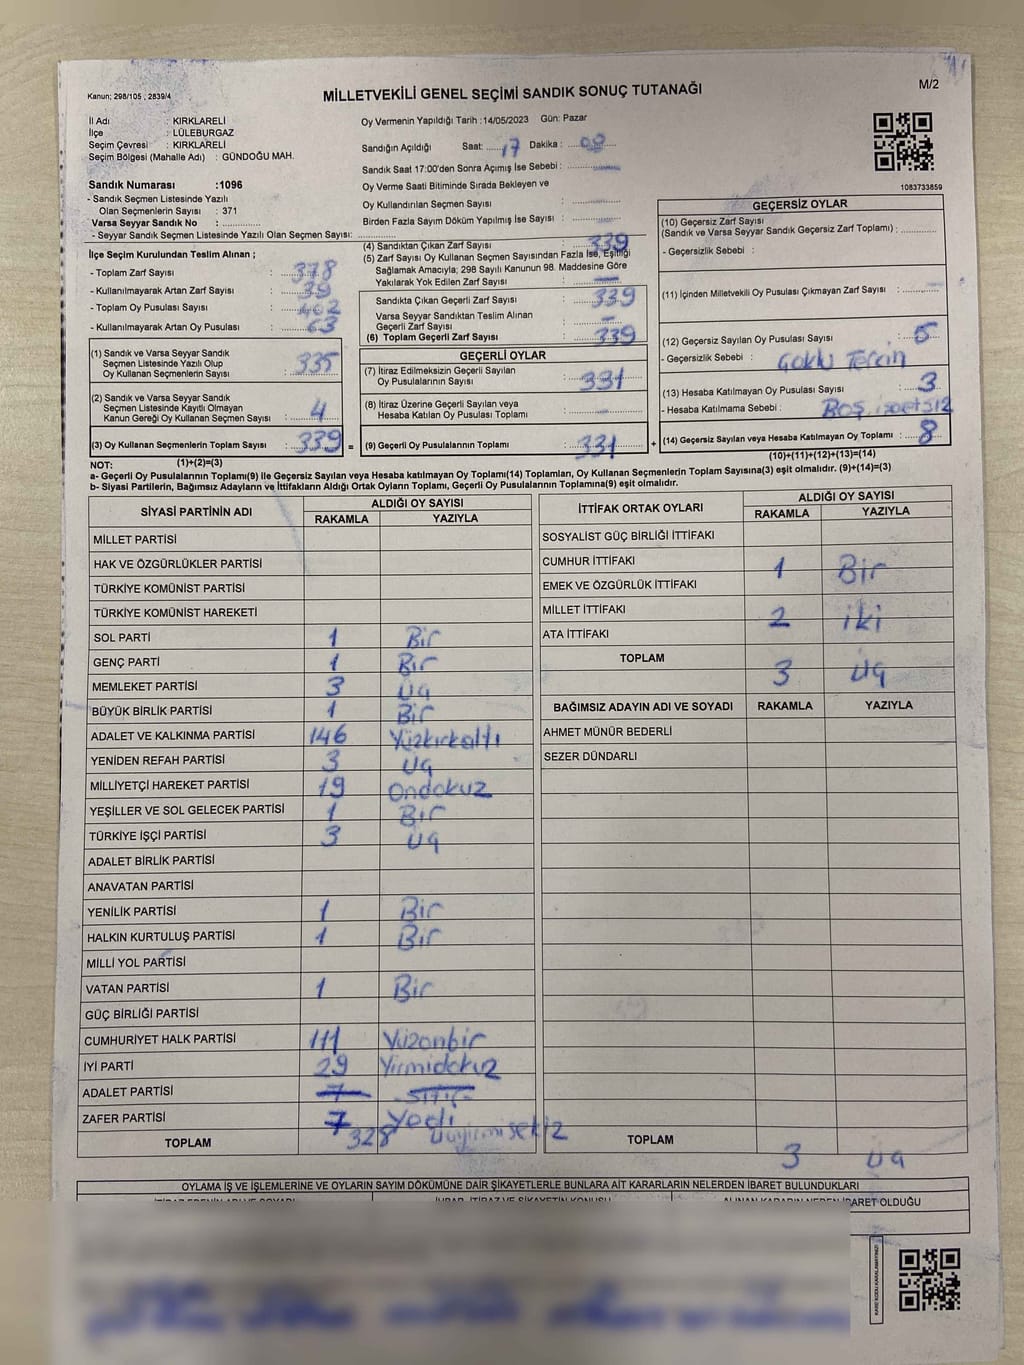 Kanun; 298/105 ; 2839/4
MİLLETVEKİLİ GENEL SEÇİMİ SANDIK SONUÇ TUTANAĞI
M/2
İl Adı : KIRKLARELİ
İlçe : LÜLEBURGAZ
Seçim Çevresi : KIRKLARELİ
Seçim Bölgesi (Mahalle Adı) : GÜNDOĞU MAH.
Sandık Numarası :1096
- Sandık Seçmen Listesinde Yazılı
Olan Seçmenlerin Sayısı : 371
Varsa Seyyar Sandık No : ..............
- Seyyar Sandık Seçmen Listesinde Yazılı Olan Seçmen Sayısı: ..............
Oy Vermenin Yapıldığı Tarih :14/05/2023 Gün: Pazar
Sandığın Açıldığı Saat: 17 Dakika : 08
Sandık Saat 17:00'den Sonra Açımış İse Sebebi :
Oy Verme Saati Bitiminde Sırada Bekleyen ve
Oy Kullandırılan Seçmen Sayısı :
Birden Fazla Sayım Döküm Yapılmış İse Sayısı :
1083733859
İlçe Seçim Kurulundan Teslim Alınan ;
- Toplam Zarf Sayısı : 378
- Kullanılmayarak Artan Zarf Sayısı : 39
- Toplam Oy Pusulası Sayısı : 402
- Kullanılmayarak Artan Oy Pusulası : 63
(1) Sandık ve Varsa Seyyar Sandık
Seçmen Listesinde Yazılı Olup
Oy Kullanan Seçmenlerin Sayısı : 335
(2) Sandık ve Varsa Seyyar Sandık
Seçmen Listesinde Kayıtlı Olmayan
Kanun Gereği Oy Kullanan Seçmen Sayısı : 4
(3) Oy Kullanan Seçmenlerin Toplam Sayısı : 339 =
(1)+(2)=(3)
(4) Sandıktan Çıkan Zarf Sayısı : 339
(5) Zarf Sayısı Oy Kullanan Seçmen Sayısından Fazla İse, Eşitliği
Sağlamak Amacıyla; 298 Sayılı Kanunun 98. Maddesine Göre
Yakılarak Yok Edilen Zarf Sayısı :
Sandıkta Çıkan Geçerli Zarf Sayısı : 339
Varsa Seyyar Sandıktan Teslim Alınan
Geçerli Zarf Sayısı : -
(6) Toplam Geçerli Zarf Sayısı : 339
GEÇERLİ OYLAR
(7) İtiraz Edilmeksizin Geçerli Sayılan
Oy Pusulalarının Sayısı : 331
(8) İtiraz Üzerine Geçerli Sayılan veya
Hesaba Katılan Oy Pusulaları Toplamı :
(9) Geçerli Oy Pusulalarının Toplamı : 331 +
GEÇERSİZ OYLAR
(10) Geçersiz Zarf Sayısı
(Sandık ve Varsa Seyyar Sandık Geçersiz Zarf Toplamı) :
- Geçersizlik Sebebi :
(11) İçinden Milletvekili Oy Pusulası Çıkmayan Zarf Sayısı :
(12) Geçersiz Sayılan Oy Pusulası Sayısı : 5
- Geçersizlik Sebebi : Çoklu Tercih
(13) Hesaba Katılmayan Oy Pusulası Sayısı : 3
- Hesaba Katılmama Sebebi : Boş işaetsiz
(14) Geçersiz Sayılan veya Hesaba Katılmayan Oy Toplamı : 8
(10)+(11)+(12)+(13)=(14)
NOT:
a- Geçerli Oy Pusulalarının Toplamı(9) ile Geçersiz Sayılan veya Hesaba katılmayan Oy Toplamı(14) Toplamları, Oy Kullanan Seçmenlerin Toplam Sayısına(3) eşit olmalıdır. (9)+(14)=(3)
b- Siyasi Partilerin, Bağımsız Adayların ve İttifakların Aldığı Ortak Oyların Toplamı, Geçerli Oy Pusulalarının Toplamına(9) eşit olmalıdır.
SİYASİ PARTİNİN ADI ALDIĞI OY SAYISI
RAKAMLA YAZIYLA
MİLLET PARTİSİ
HAK VE ÖZGÜRLÜKLER PARTİSİ
TÜRKİYE KOMÜNİST PARTİSİ
TÜRKİYE KOMÜNİST HAREKETİ
SOL PARTİ 1 Bir
GENÇ PARTİ 1 Bir
MEMLEKET PARTİSİ 3 Üç
BÜYÜK BİRLİK PARTİSİ 1 Bir
ADALET VE KALKINMA PARTİSİ 146 Yüzkırkaltı
YENİDEN REFAH PARTİSİ 3 Üç
MİLLİYETÇİ HAREKET PARTİSİ 19 Ondokuz
YEŞİLLER VE SOL GELECEK PARTİSİ 1 Bir
TÜRKİYE İŞÇİ PARTİSİ 3 Üç
ADALET BİRLİK PARTİSİ
ANAVATAN PARTİSİ
YENİLİK PARTİSİ 1 Bir
HALKIN KURTULUŞ PARTİSİ 1 Bir
MİLLİ YOL PARTİSİ
VATAN PARTİSİ 1 Bir
GÜÇ BİRLİĞİ PARTİSİ
CUMHURİYET HALK PARTİSİ 111 Yüzonbir
İYİ PARTİ 29 Yirmidokuz
ADALET PARTİSİ
ZAFER PARTİSİ 7 Yedi
TOPLAM 328 Üçyirmisekiz
İTTİFAK ORTAK OYLARI ALDIĞI OY SAYISI
RAKAMLA YAZIYLA
SOSYALİST GÜÇ BİRLİĞİ İTTİFAKI
CUMHUR İTTİFAKI 1 Bir
EMEK VE ÖZGÜRLÜK İTTİFAKI
MİLLET İTTİFAKI 2 iki
ATA İTTİFAKI
TOPLAM 3 Üç
BAĞIMSIZ ADAYIN ADI VE SOYADI RAKAMLA YAZIYLA
AHMET MÜNÜR BEDERLİ
SEZER DÜNDARLI
TOPLAM 3 Üç
OYLAMA İŞ VE İŞLEMLERİNE VE OYLARIN SAYIM DÖKÜMÜNE DAİR ŞİKAYETLERLE BUNLARA AİT KARARLARIN NELERDEN İBARET BULUNDUKLARI
ALINAN KARARIN NEDEN İBARET OLDUĞU